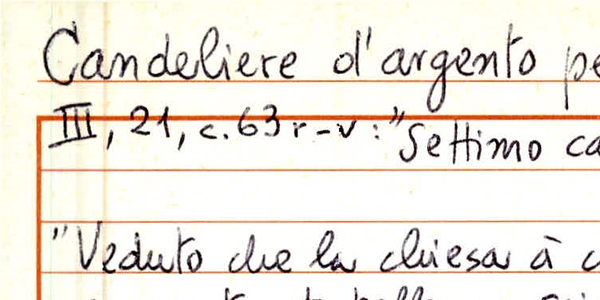 Candeliere d'argento pe
III, 21, c. 63 r-v: "Settimo ca
"Veduto che la chiesa à c